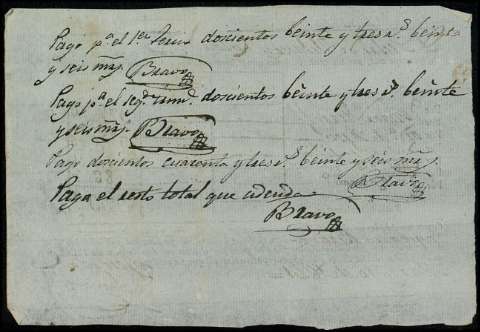 Pago p.ª el 1.er Tercio doscientos beinte y tres r.s beinte
y seis mrs. Bravo
Pago p.r el seg.do doscientos beinte y tres r.s beinte
y seis mrs. Bravo
Pago doscientos cuarenta y tres r.s beinte y seis mrs.
Bravo
Paga el resto total que adeuda
Bravo